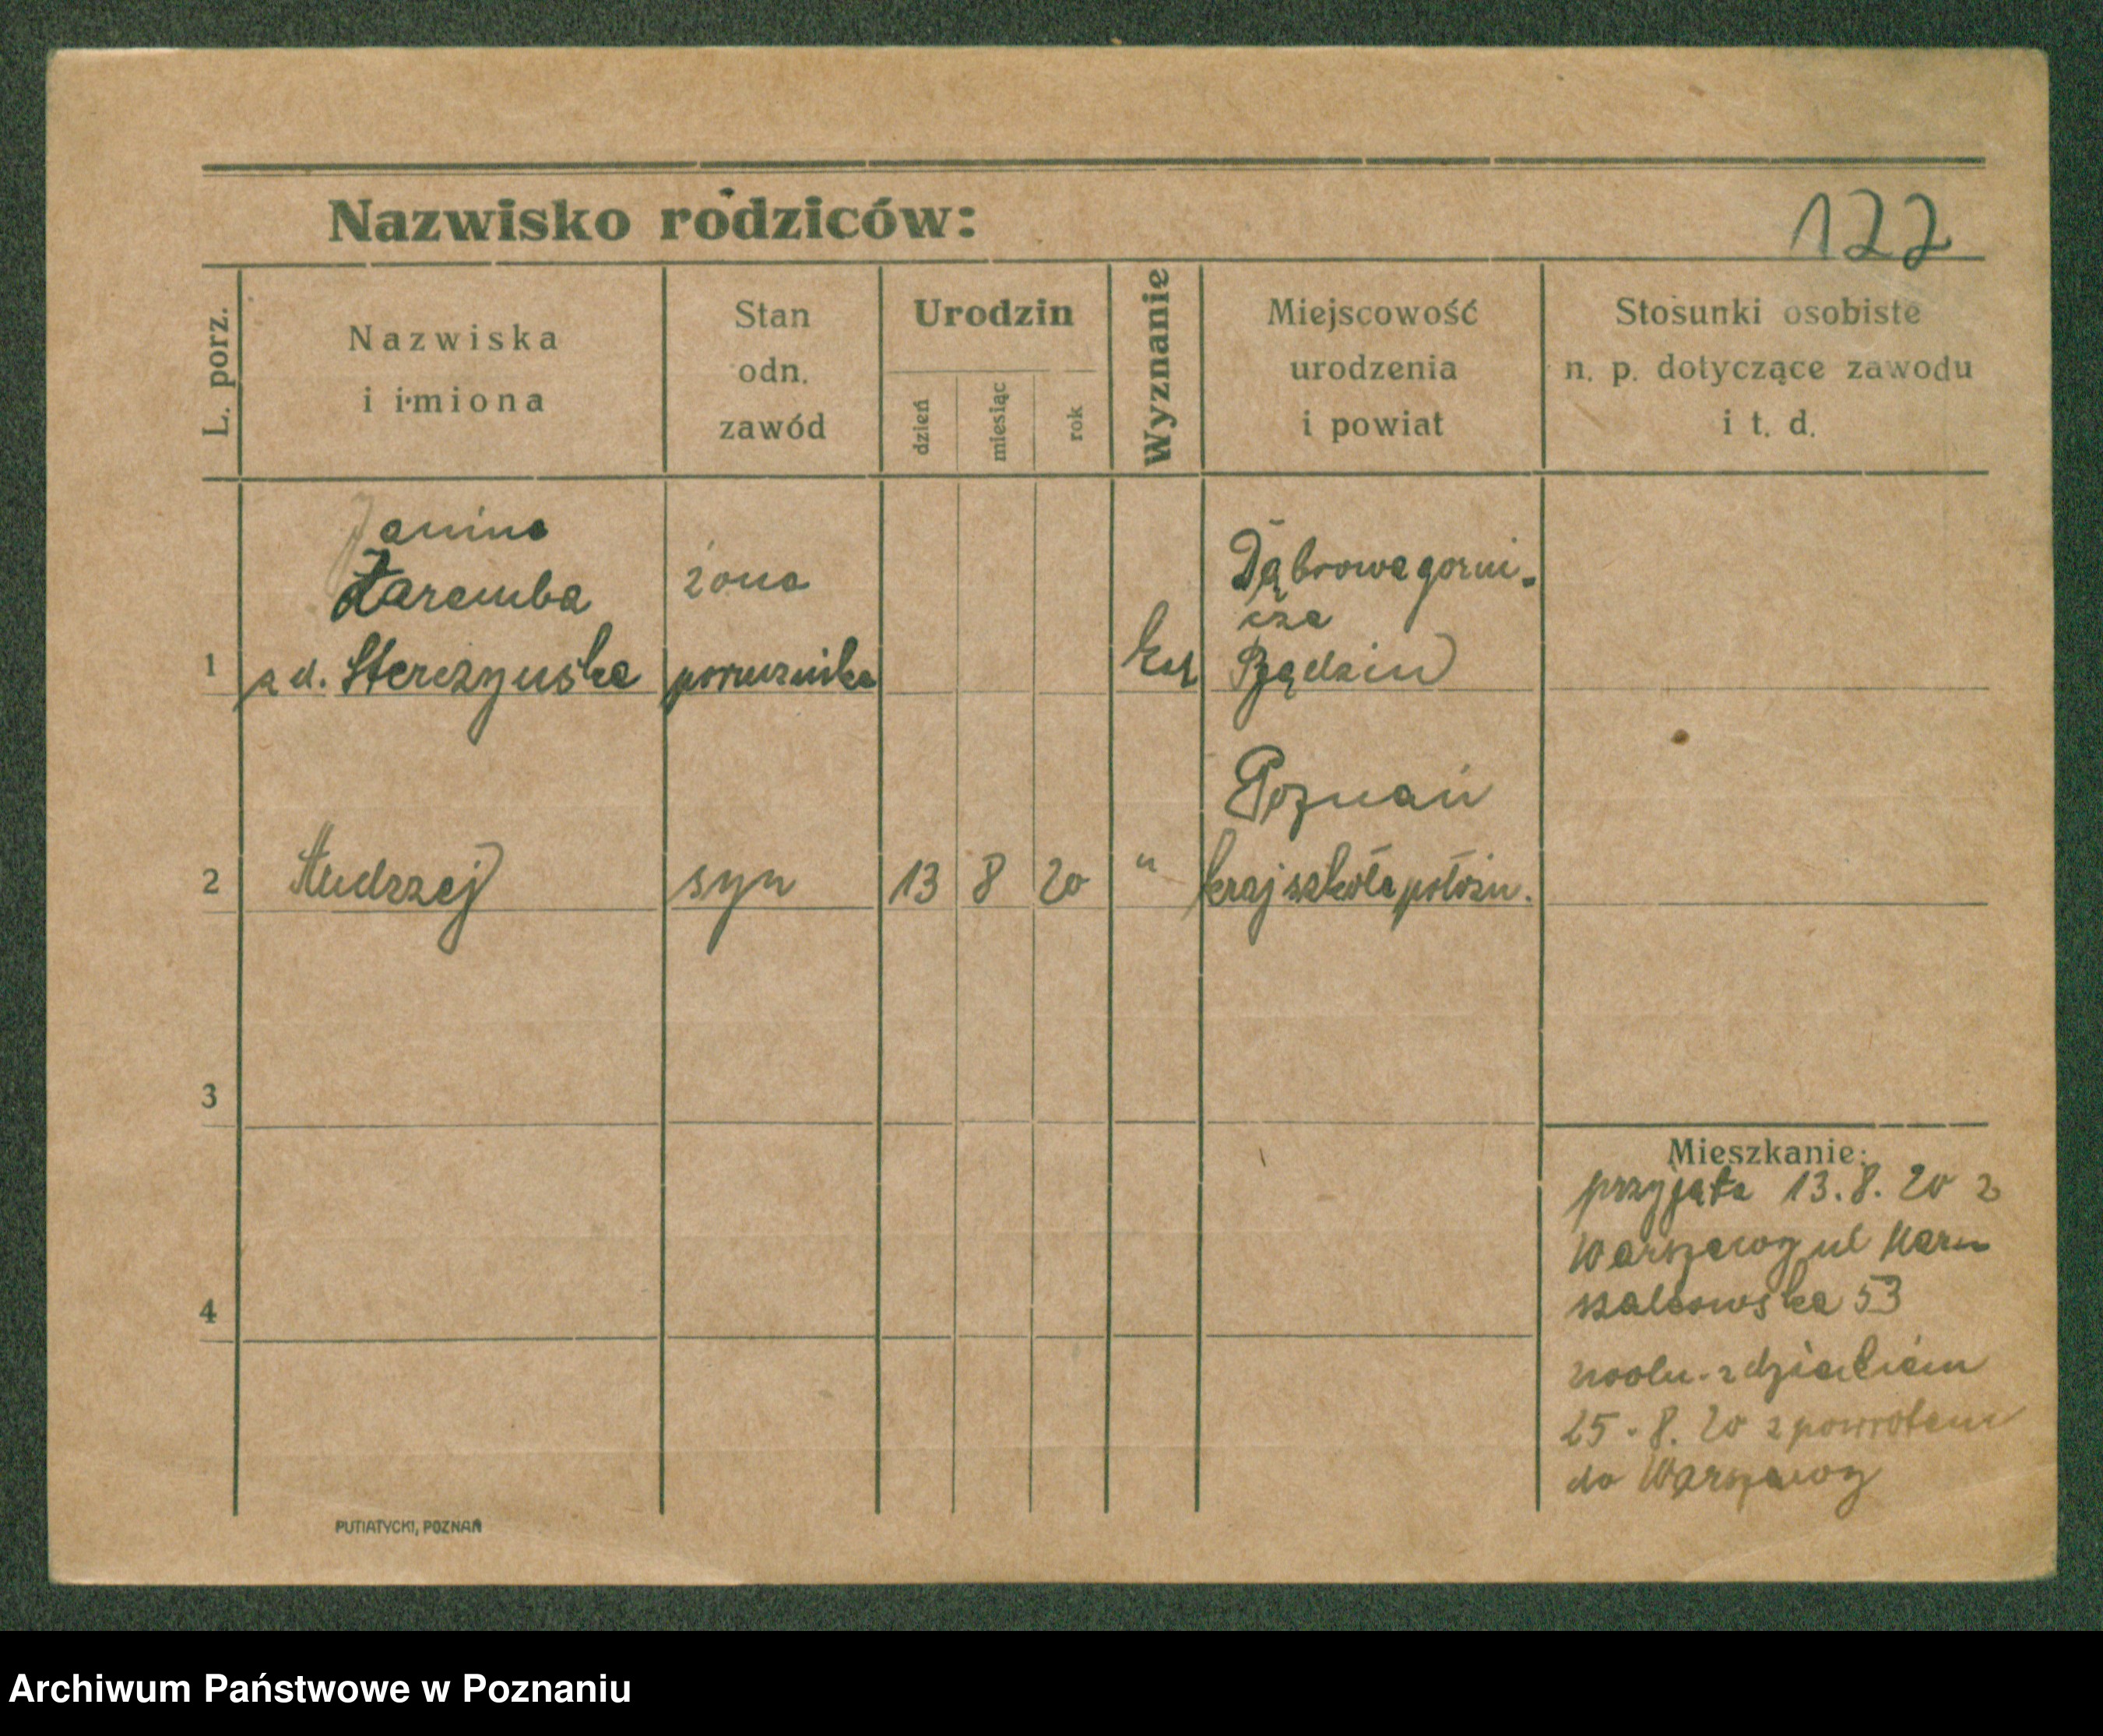 Nazwisko rodziców:
122
L. porz.
Nazwiska
i imiona
Stan
odn.
zawód
Urodzin
dzień
miesiąc
rok
Wyznanie
Miejscowość
urodzenia
i powiat
Stosunki osobiste
n. p. dotyczące zawodu
i t. d.
Janina
Zaremba
1 z d. Sterczyńska
żona
porucznika
kat
Dąbrowa gorni-
cza
Będzin
2 Andrzej syn 13 8 20 "
Poznań
kraj szkoła położn.
3
4
Mieszkanie:
przyjęta 13.8.20 z
Warszawy ul Mar
szalkowska 53
zwoln. z dzieckiem
25.8.20 z powrotem
do Warszawy
PUTIATYCKI, POZNAŃ
Archiwum Państwowe w Poznaniu